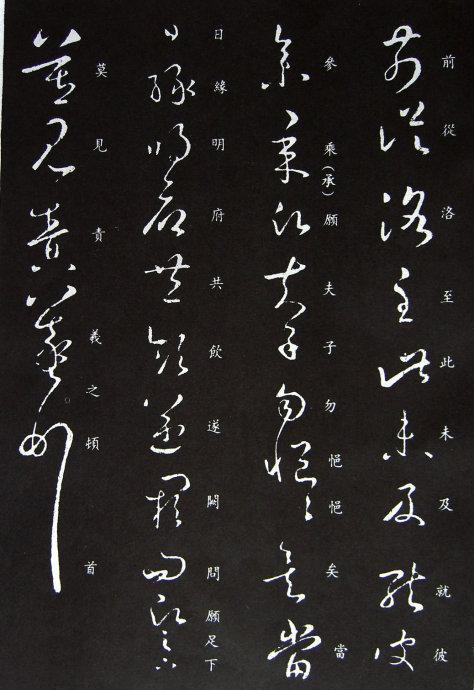 前從洛至此未及就彼
參乘(承)願夫子勿悒悒矣當
日緣明府共飲遂闕問願足下
莫見責義之頓首